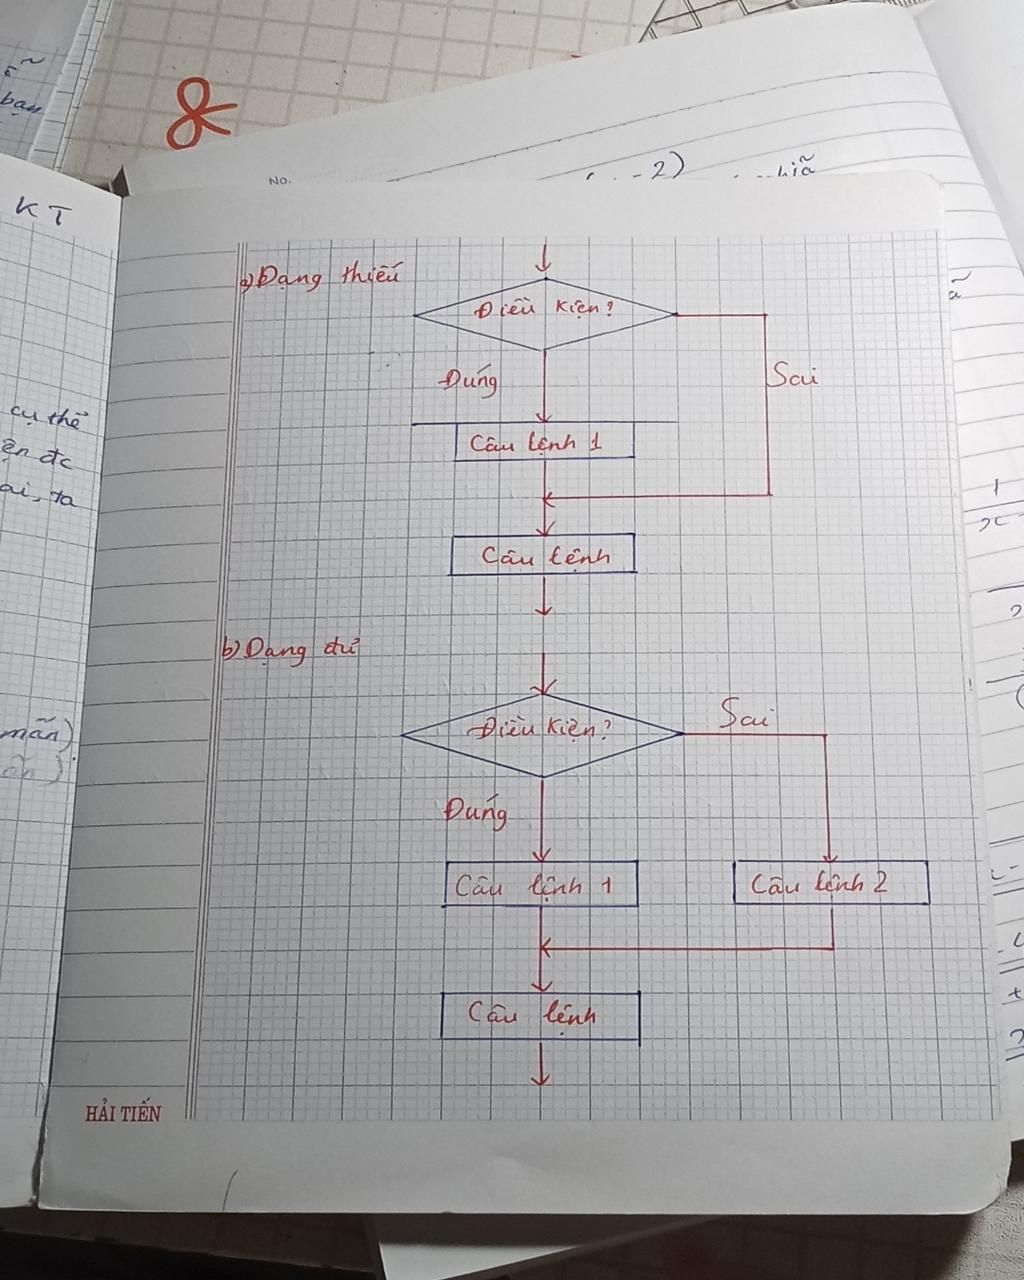 bạn
No.
-2)
KT
cụ thể
ện đc
ai, ta
mãn)
a) Dạng thiếu
Điều kiện?
Đúng
Sai
Câu lệnh 1
Câu lệnh
b) Dạng đủ
Điều kiện?
Sai
Đúng
Câu lệnh 1
Câu lệnh 2
Câu lệnh
HẢI TIẾN
1
x